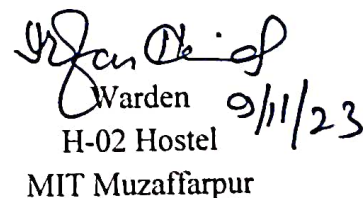 Irfan
Warden 9/11/23
H-02 Hostel
MIT Muzaffarpur